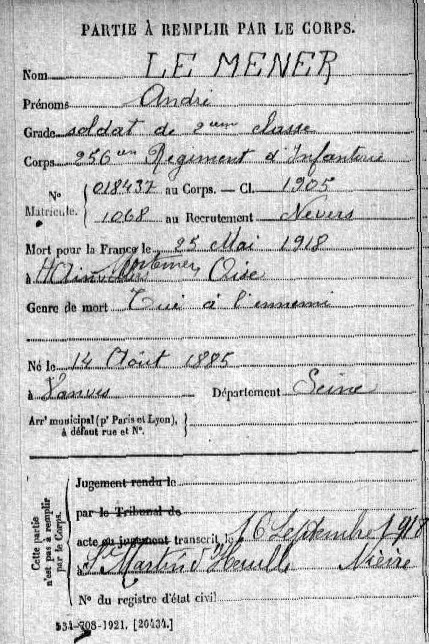 PARTIE À REMPLIR PAR LE CORPS.
Nom LE MENER
Prénoms André
Grade soldat de 2eme classe
Corps 256eme Régiment d'Infanterie
N° Matricule. { 018437 au Corps. — Cl. 1905
1068 au Recrutement Nevers
Mort pour la France le 25 Mai 1918
à Oise
Genre de mort Tué à l'ennemi
Né le 14 Août 1885
à Vanves Département Seine
Arrt municipal (pr Paris et Lyon), à défaut rue et N°. }
Cette partie n'est pas à remplir par le Corps. {
Jugement rendu le
par le Tribunal de
acte ou jugement transcrit le 16 Septembre 1918
à St Martin d'Heuille Nièvre
N° du registre d'état civil
534-708-1921. [20434.]